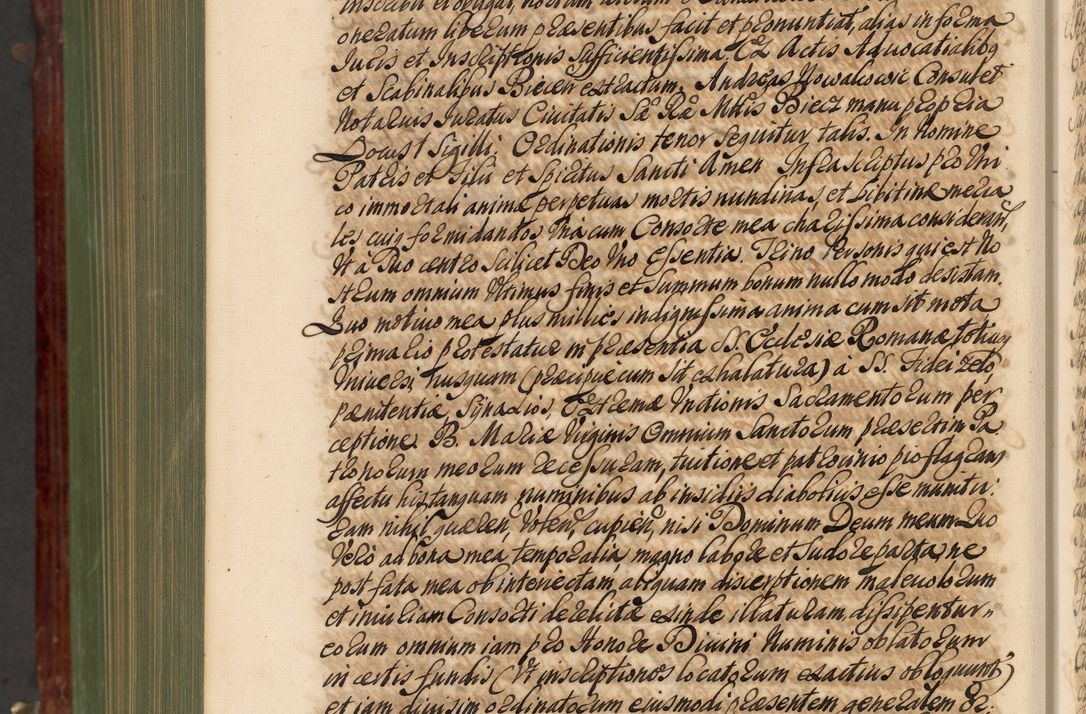 oneratum liberum præsentibus facit et pronuntiat, alias in forma
Juris et Inscriptionis sufficientissima. Ex Actis Advocatialibq
et Scabinalibus Biecen extractam. Andreas Nowakowic Consul et
Notarius Juratus Civitatis Sæ Ræ Mttis Biecz manu propria
Locus † Sigilli; Ordinationis tenor sequitur talis. In Nomine
Patris et Filii et Spiritus Sancti Amen Infrascriptus pro Uni
co immortali anima perpetuas mortis nundinas, et libitinæ mera
les cuiq formidandos Una cum Consorte mea charissima consideran,
Ut à Suo centro scilicet Deo Uno Essentia. Trino Personis qui est No
strum omnium Ultimus finis et Summum bonum nullo modo desistam.
Quo motivo mea plus millies indignissima anima cum sit mota
primario protestatur in præsentia SS. Ecclesiæ Romanæ totius
Universi, nusquam (præcipue cum sit exhalatura) à SS. Fidei zelo,
pænitentiæ, Synaxios, Extremæ Unctionis Sacramentorum per
ceptione, B. Mariæ Virginis Omnium Sanctorum præsertim Pa
tronorum meorum recessuram, tuitione et patrocinio pio flagrans
affectu his tanquam numinibus ab insidiis diabolicis esse munitu,
ram nihil quæren, Volen, cupien, nisi Dominum Deum meum Quo
Vero ad bona mea temporalia, magno labore et sudore parta, ne
post fata mea ob interiectam, aliquam discerptionem malevolorum
et iniuriam Consorti derelictæ exinde illaturam, dissipentur
eorum omnium iam pro Honore Divini Numinis oblatorum
in certis fundis (Ut inscriptiones locatorum exactius obloquunt)
et iam divisim ordinatorum eiusmodi præsentem generalem &c: